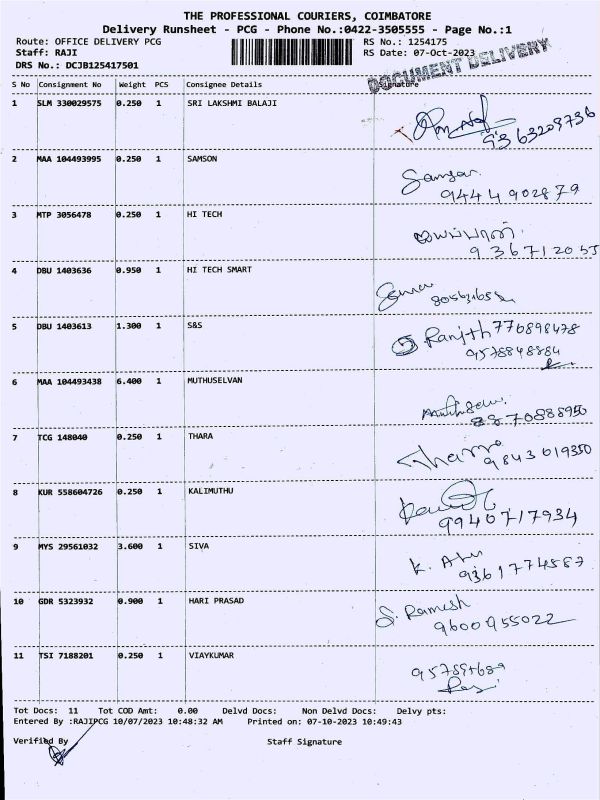 THE PROFESSIONAL COURIERS, COIMBATORE
Delivery Runsheet - PCG - Phone No.:0422-3505555 - Page No.:1
Route: OFFICE DELIVERY PCG RS No.: 1254175
Staff: RAJI RS Date: 07-Oct-2023
DRS No.: DCJB125417501
DOCUMENT DELIVERY
S No Consignment No Weight PCS Consignee Details Signature
1 SLM 330029575 0.250 1 SRI LAKSHMI BALAJI
9363209736
2 MAA 104493995 0.250 1 SAMSON
9444902879
3 MTP 3056478 0.250 1 HI TECH
4 DBU 1403636 0.950 1 HI TECH SMART
5 DBU 1403613 1.300 1 S&S
Ranjith 776898478
9578848884
6 MAA 104493438 6.400 1 MUTHUSELVAN
7 TCG 148040 0.250 1 THARA
9843019350
8 KUR 558604726 0.250 1 KALIMUTHU
9940717934
9 MYS 29561032 3.600 1 SIVA
9361774587
10 GDR 5323932 0.900 1 HARI PRASAD
S. Ramesh
9600955022
11 TSI 7188201 0.250 1 VIAYKUMAR
Tot Docs: 11 Tot COD Amt: 0.00 Delvd Docs: Non Delvd Docs: Delvy pts:
Entered By :RAJIPCG 10/07/2023 10:48:32 AM Printed on: 07-10-2023 10:49:43
Verified By Staff Signature